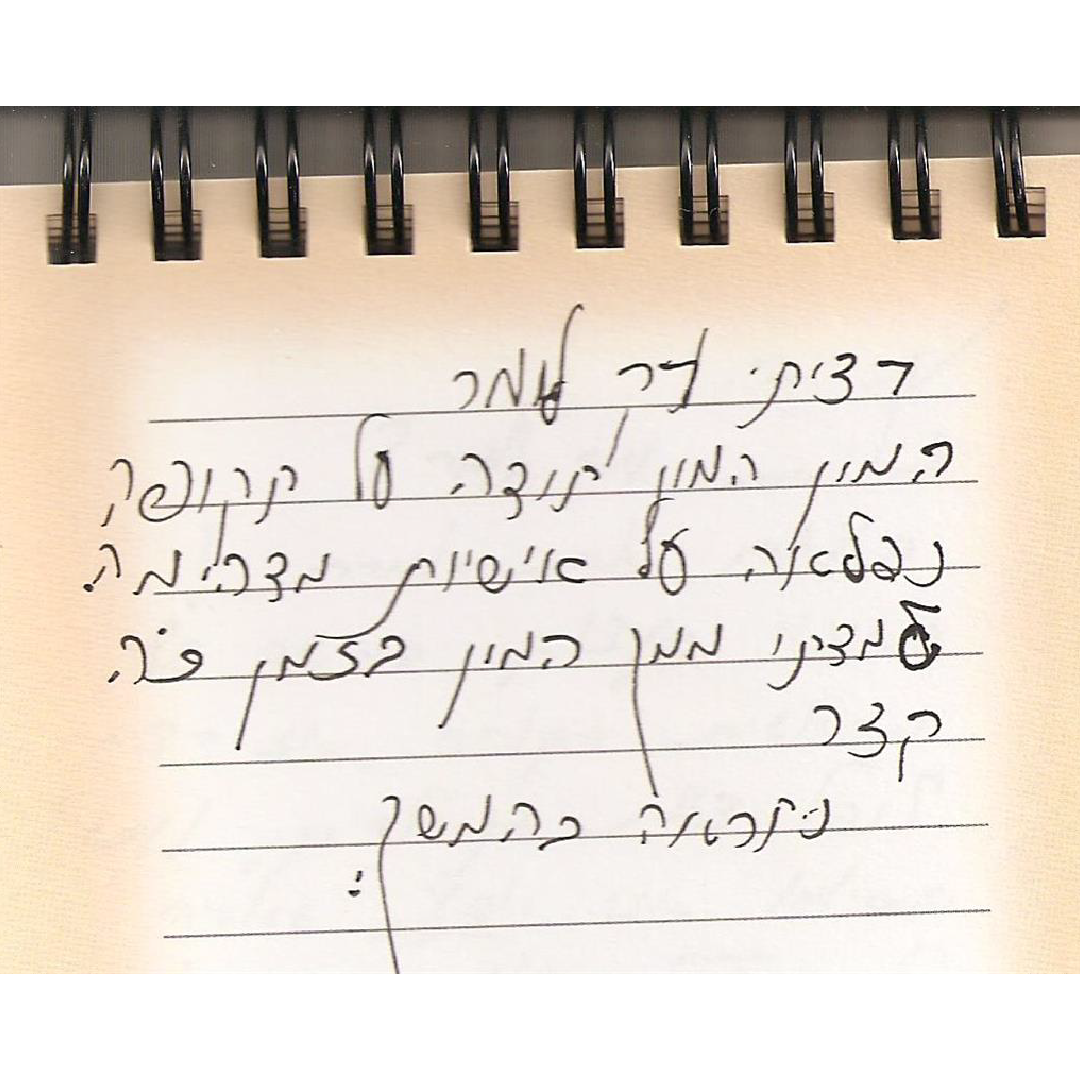 רציתי רק לומר
המון המון תודה על תקופה
נפלאה על אישיות מדהימה.
למדתי ממך המון בזמן כ"כ
קצר
נתראה בהמשך